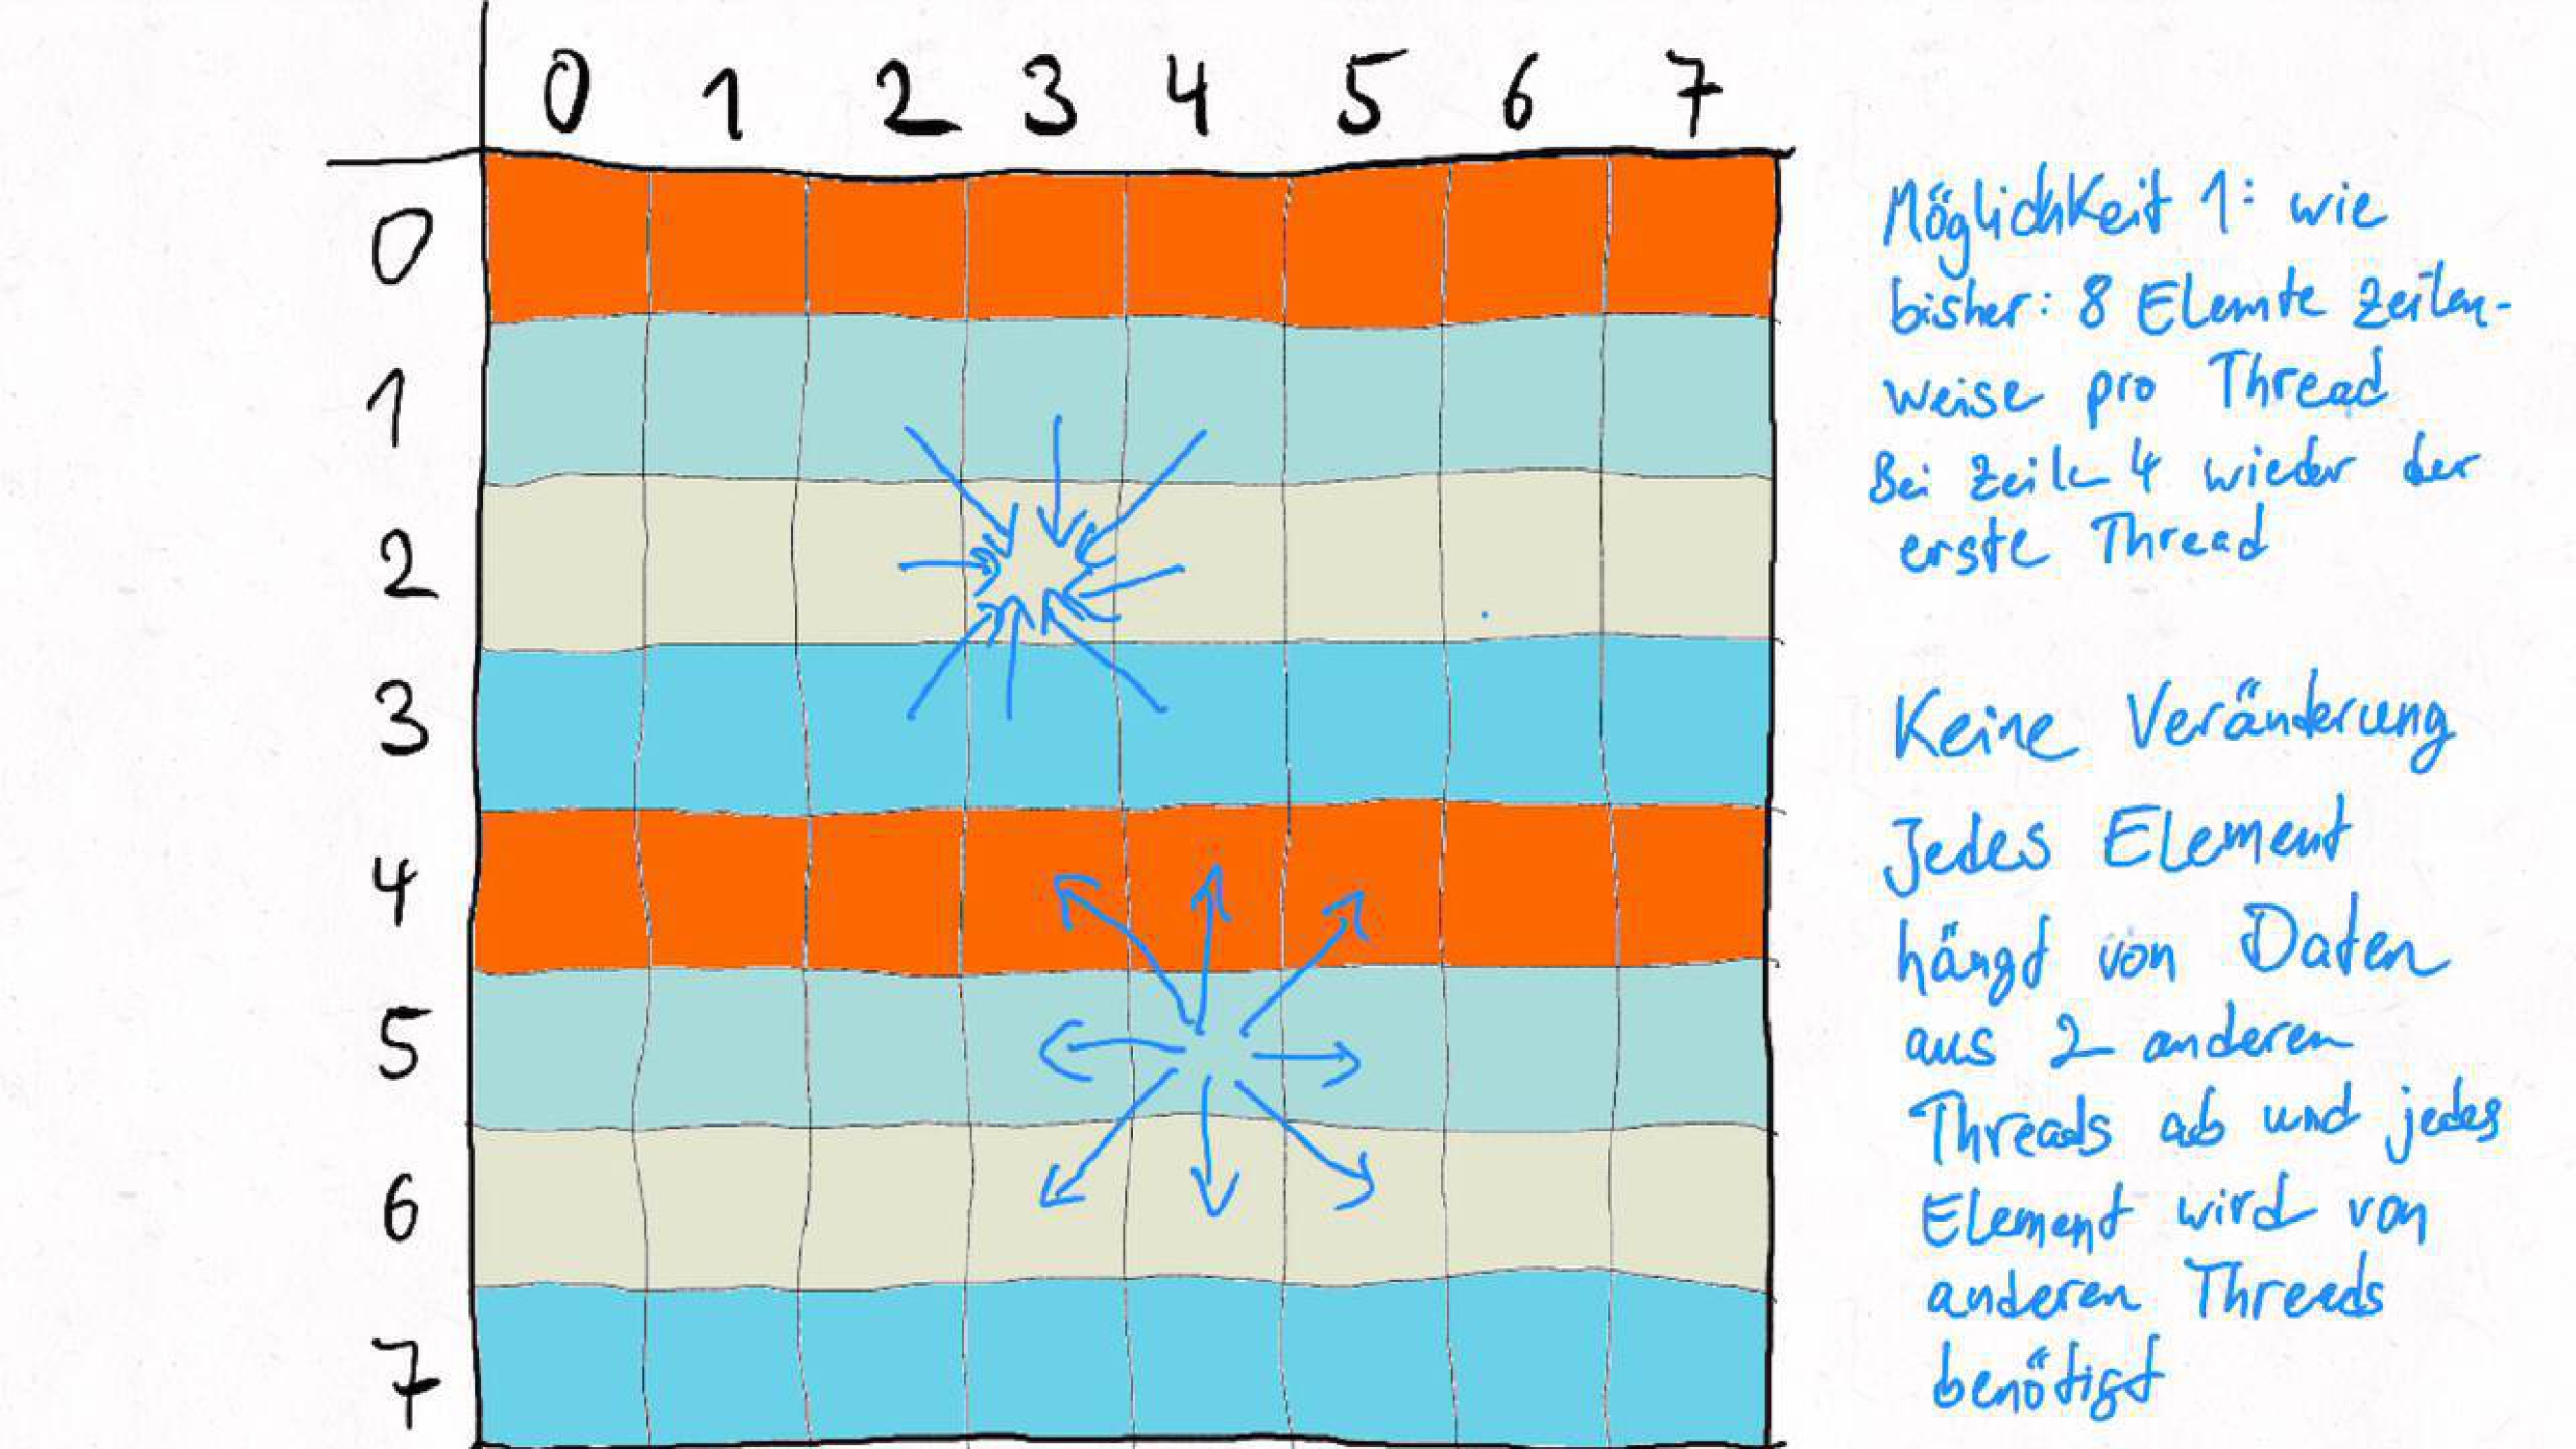 0 1 2 3 4 5 6 7
0
1
2
3
4
5
6
7
Möglichkeit 1: wie
bisher: 8 Elemte Zeilen-
weise pro Thread
Bei Zeile 4 wieder der
erste Thread
Keine Veränderung
Jedes Element
hängt von Daten
aus 2 anderen
Threads ab und jedes
Element wird von
anderen Threads
benötigt